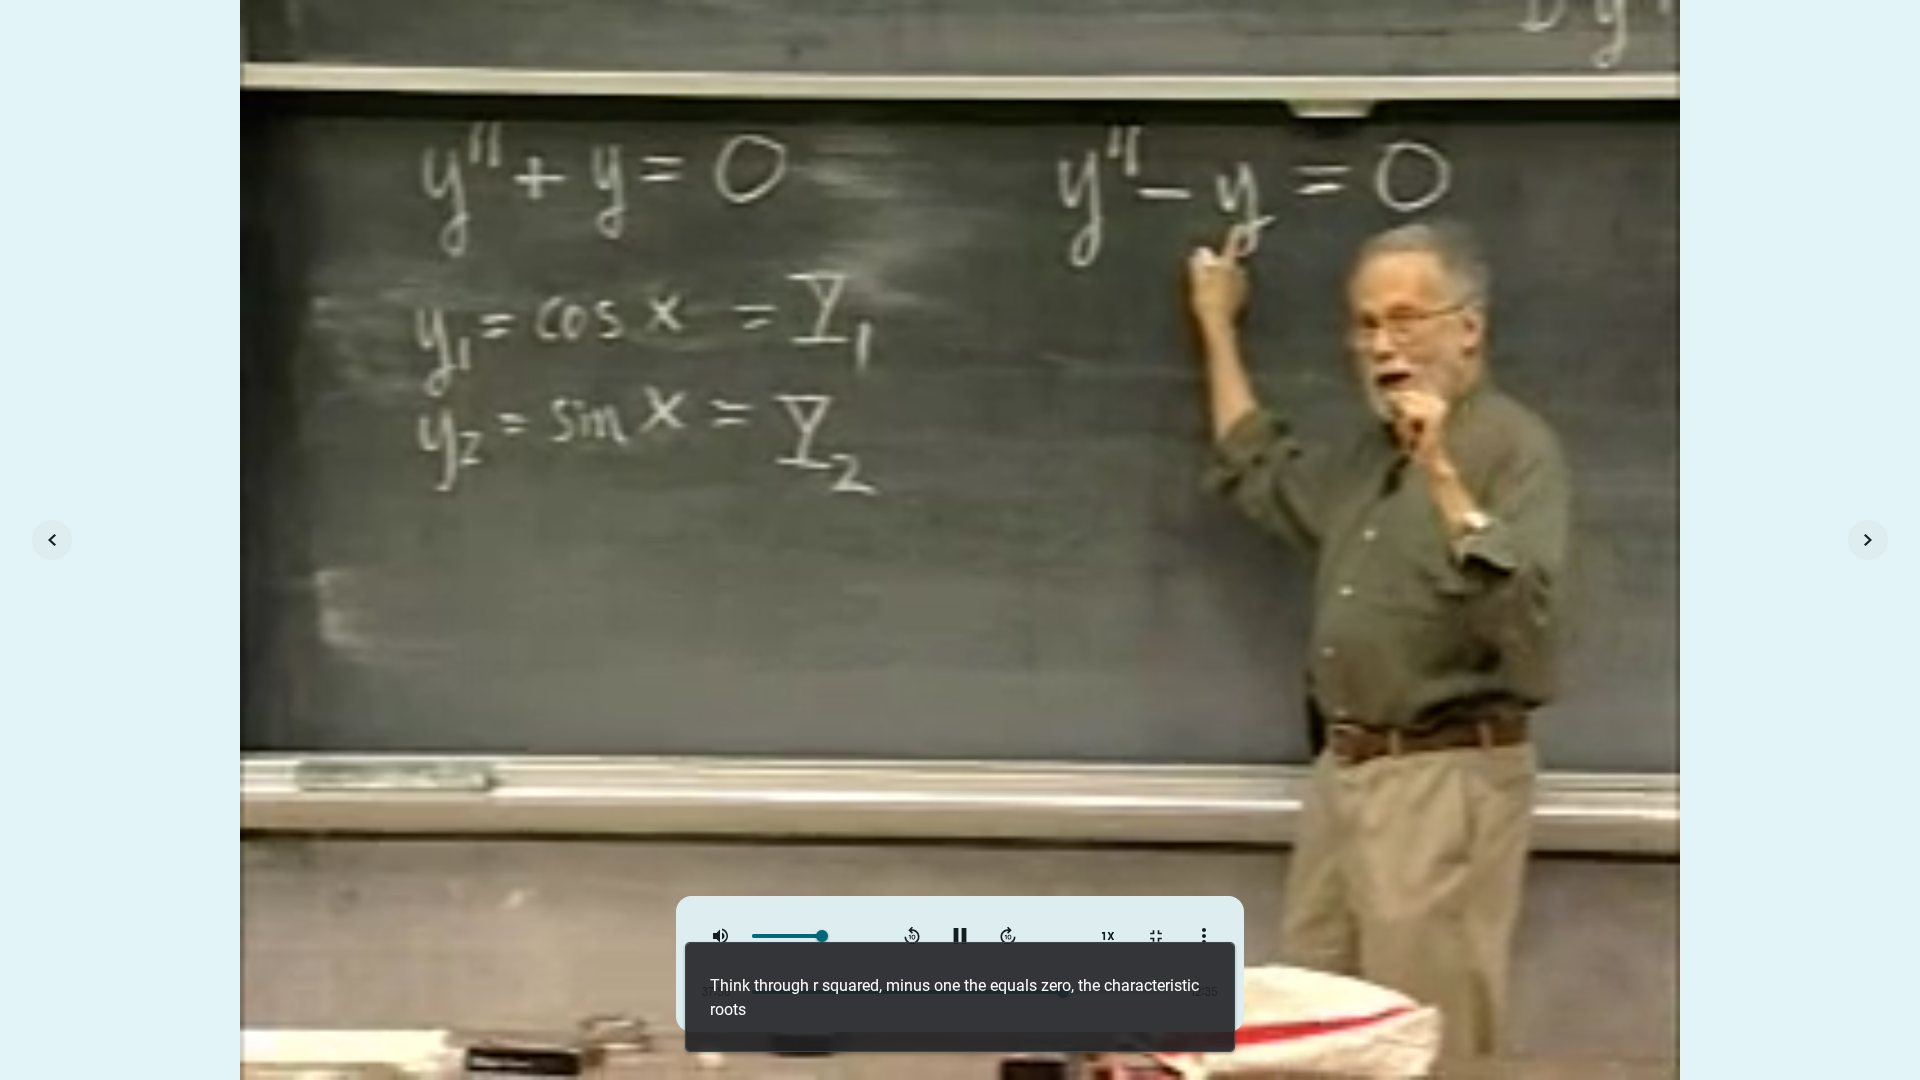 y'' + y = 0
y₁ = cos x = Y₁
y₂ = sin x = Y₂
y'' - y = 0
1X
Think through r squared, minus one the equals zero, the characteristic
roots